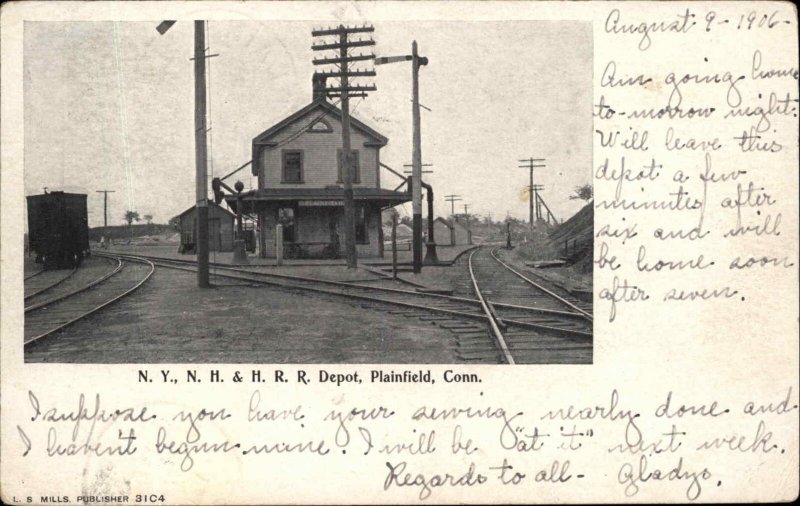 August 9 - 1906 -
Am going home
to-morrow night.
Will leave this
depot a few
minutes after
six and will
be home soon
after seven.
N. Y., N. H. & H. R. R. Depot, Plainfield, Conn.
I suppose you have your sewing nearly done and
I haven't begun mine. I will be "at it" next week.
Regards to all - Gladys.
L. S MILLS, PUBLISHER 31C4